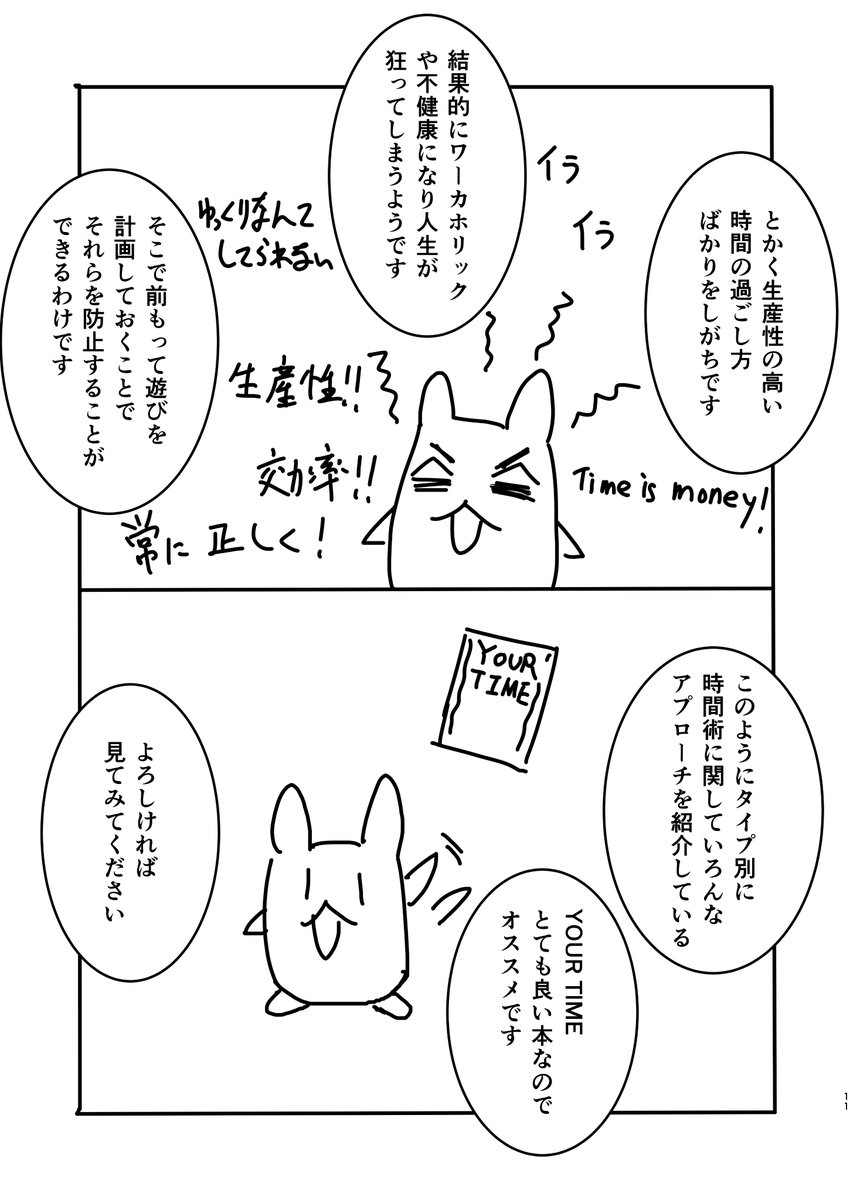 とかく生産性の高い
時間の過ごし方
ばかりをしがちです
イラ
イラ
結果的にワーカホリック
や不健康になり人生が
狂ってしまうようです
ゆっくりなんて
してられない
生産性!!
効率!!
常に正しく!
Time is money!
そこで前もって遊びを
計画しておくことで
それらを防止することが
できるわけです
このようにタイプ別に
時間術に関していろんな
アプローチを紹介している
YOUR
TIME
YOUR TIME
とても良い本なので
オススメです
よろしければ
見てみてください
11